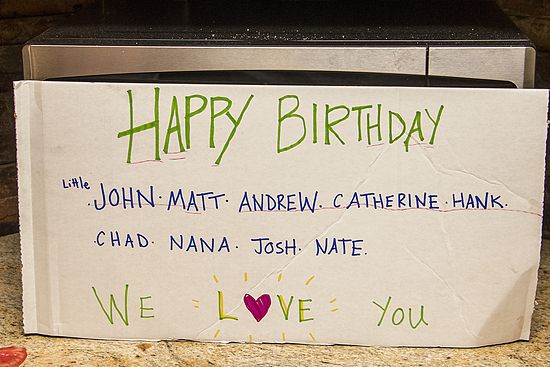 HAPPY BIRTHDAY
Little JOHN · MATT · ANDREW · CATHERINE · HANK ·
· CHAD · NANA · JOSH · NATE ·
WE L♥VE YOU